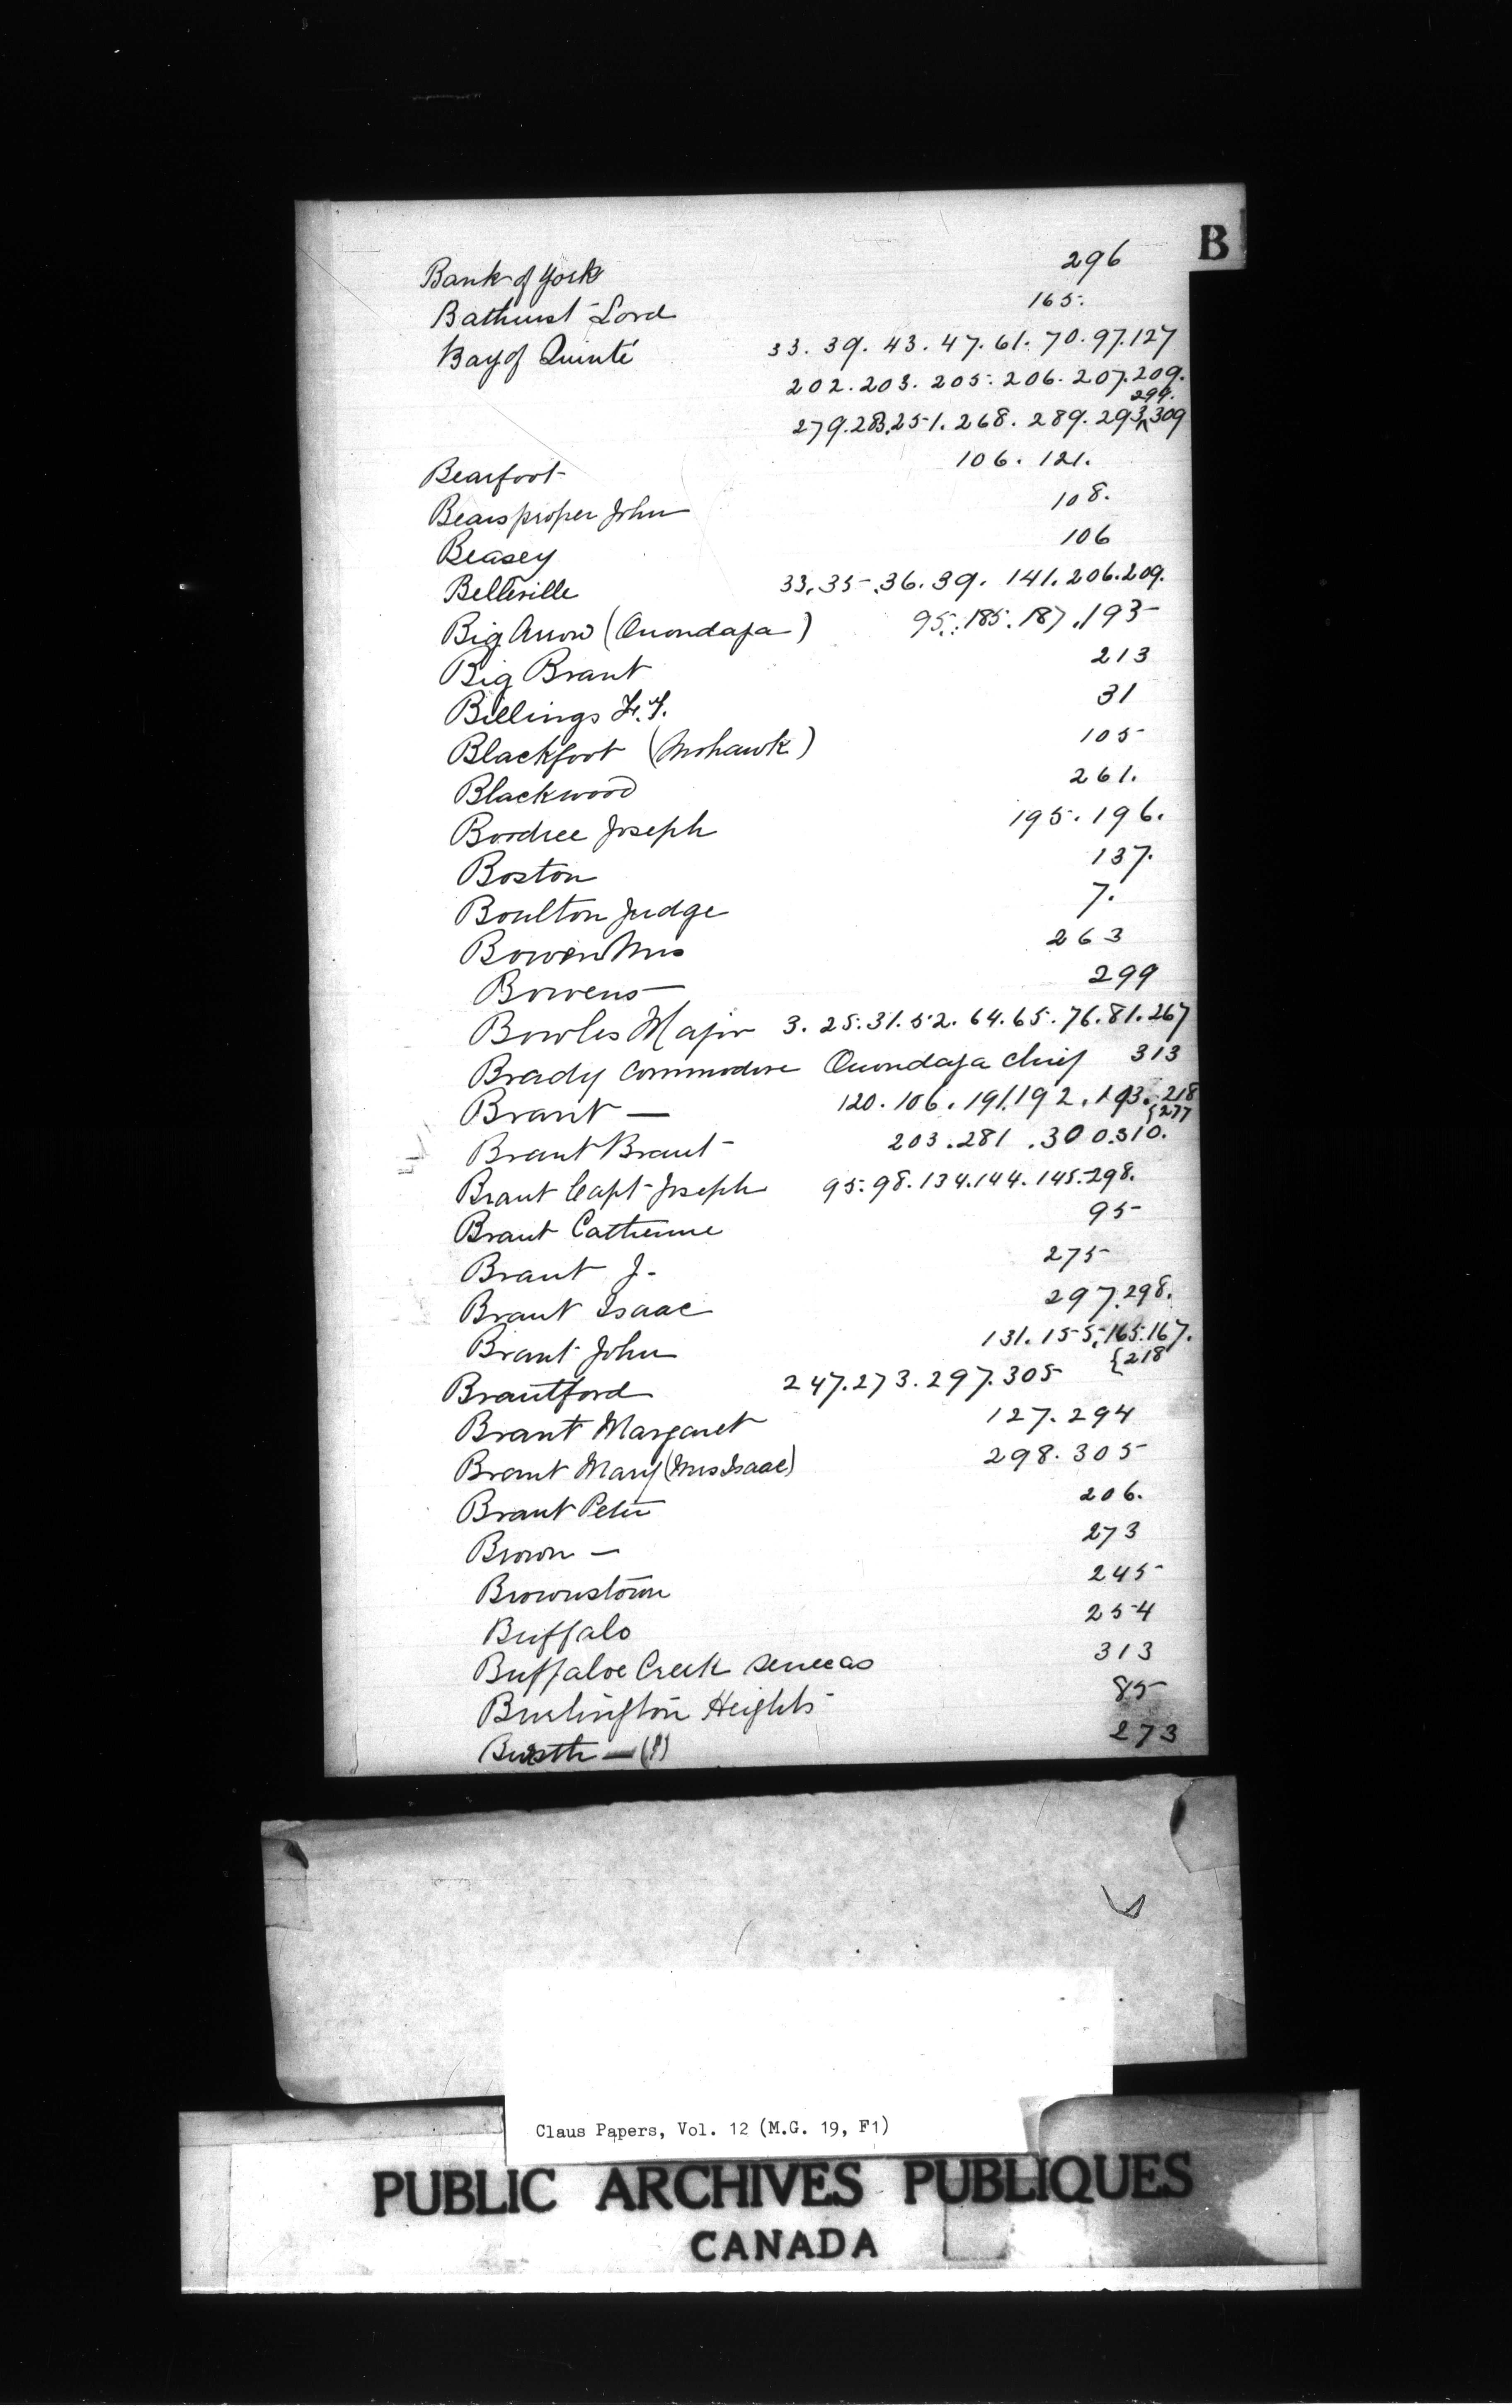 B
Bank of York 296
Bathurst Lord 165.
Bay of Quinté 33. 39. 43. 47. 61. 70. 97. 127
202. 203. 205. 206. 207. 209.
299.
279. 283. 251. 268. 289. 293, 309
Bearfoot 106. 121.
Bearsproper John 108.
Beasey 106
Belleville 33. 35. 36. 39. 141. 206. 209.
Big Arrow (Onondaga) 95. 185. 187. 193
Big Brant 213
Billings 31
Blackfoot (Mohawk) 105
Blackwood 261.
Boodree Joseph 195. 196.
Boston 137.
Boulton Judge 7.
Bowen Mrs 263
Bowens 299
Bowles Major 3. 25. 31. 52. 64. 65. 76. 81. 267
Brady Commodore Onondaga Chief 313
Brant — 120. 106. 191. 192. 193. 218
{277
Brant Brant 203. 281. 300. 310.
Brant Capt Joseph 95. 98. 134. 144. 145. 298.
Brant Catherine 95
Brant J. 275
Brant Isaac 297. 298.
Brant John 131. 155. 165. 167.
{218
Brantford 247. 273. 297. 305
Brant Margaret 127. 294
Brant Mary (Mrs Isaac) 298. 305
Brant Peter 206.
Brown — 273
Brownstown 245
Buffalo 254
Buffaloe Creek Senecas 313
Burlington Heights 85
— (?) 273
Claus Papers, Vol. 12 (M.G. 19, F1)
PUBLIC ARCHIVES PUBLIQUES
CANADA